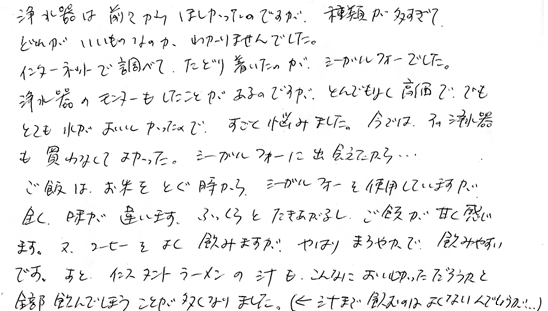 浄水器は前からほしかったのですが、種類が多すぎて
どれがいいものなのか、わかりませんでした。
インターネットで調べて、たどり着いたのが、シーガルフォーでした。
浄水器のモニターもしたことがあるのですが、とんでもなく高価で、でも
とても水がおいしかったので、すごく悩みました。今では、その浄水器
も買わなくてよかった。シーガルフォーに出会えたから…
ご飯は、お米をとぐ時から、シーガルフォーを使用していますが
全く、味が違います。ふっくらとたきあがるし、ご飯が甘く感じ
ます。又、コーヒーをよく飲みますが、やはりまろやかで飲みやすい
です。あと、インスタントラーメンの汁も、こんなにおいしかっただろうかと
全部飲んでしまうことが多くなりました。(←汁まで飲むのはよくないんでしょうが…)